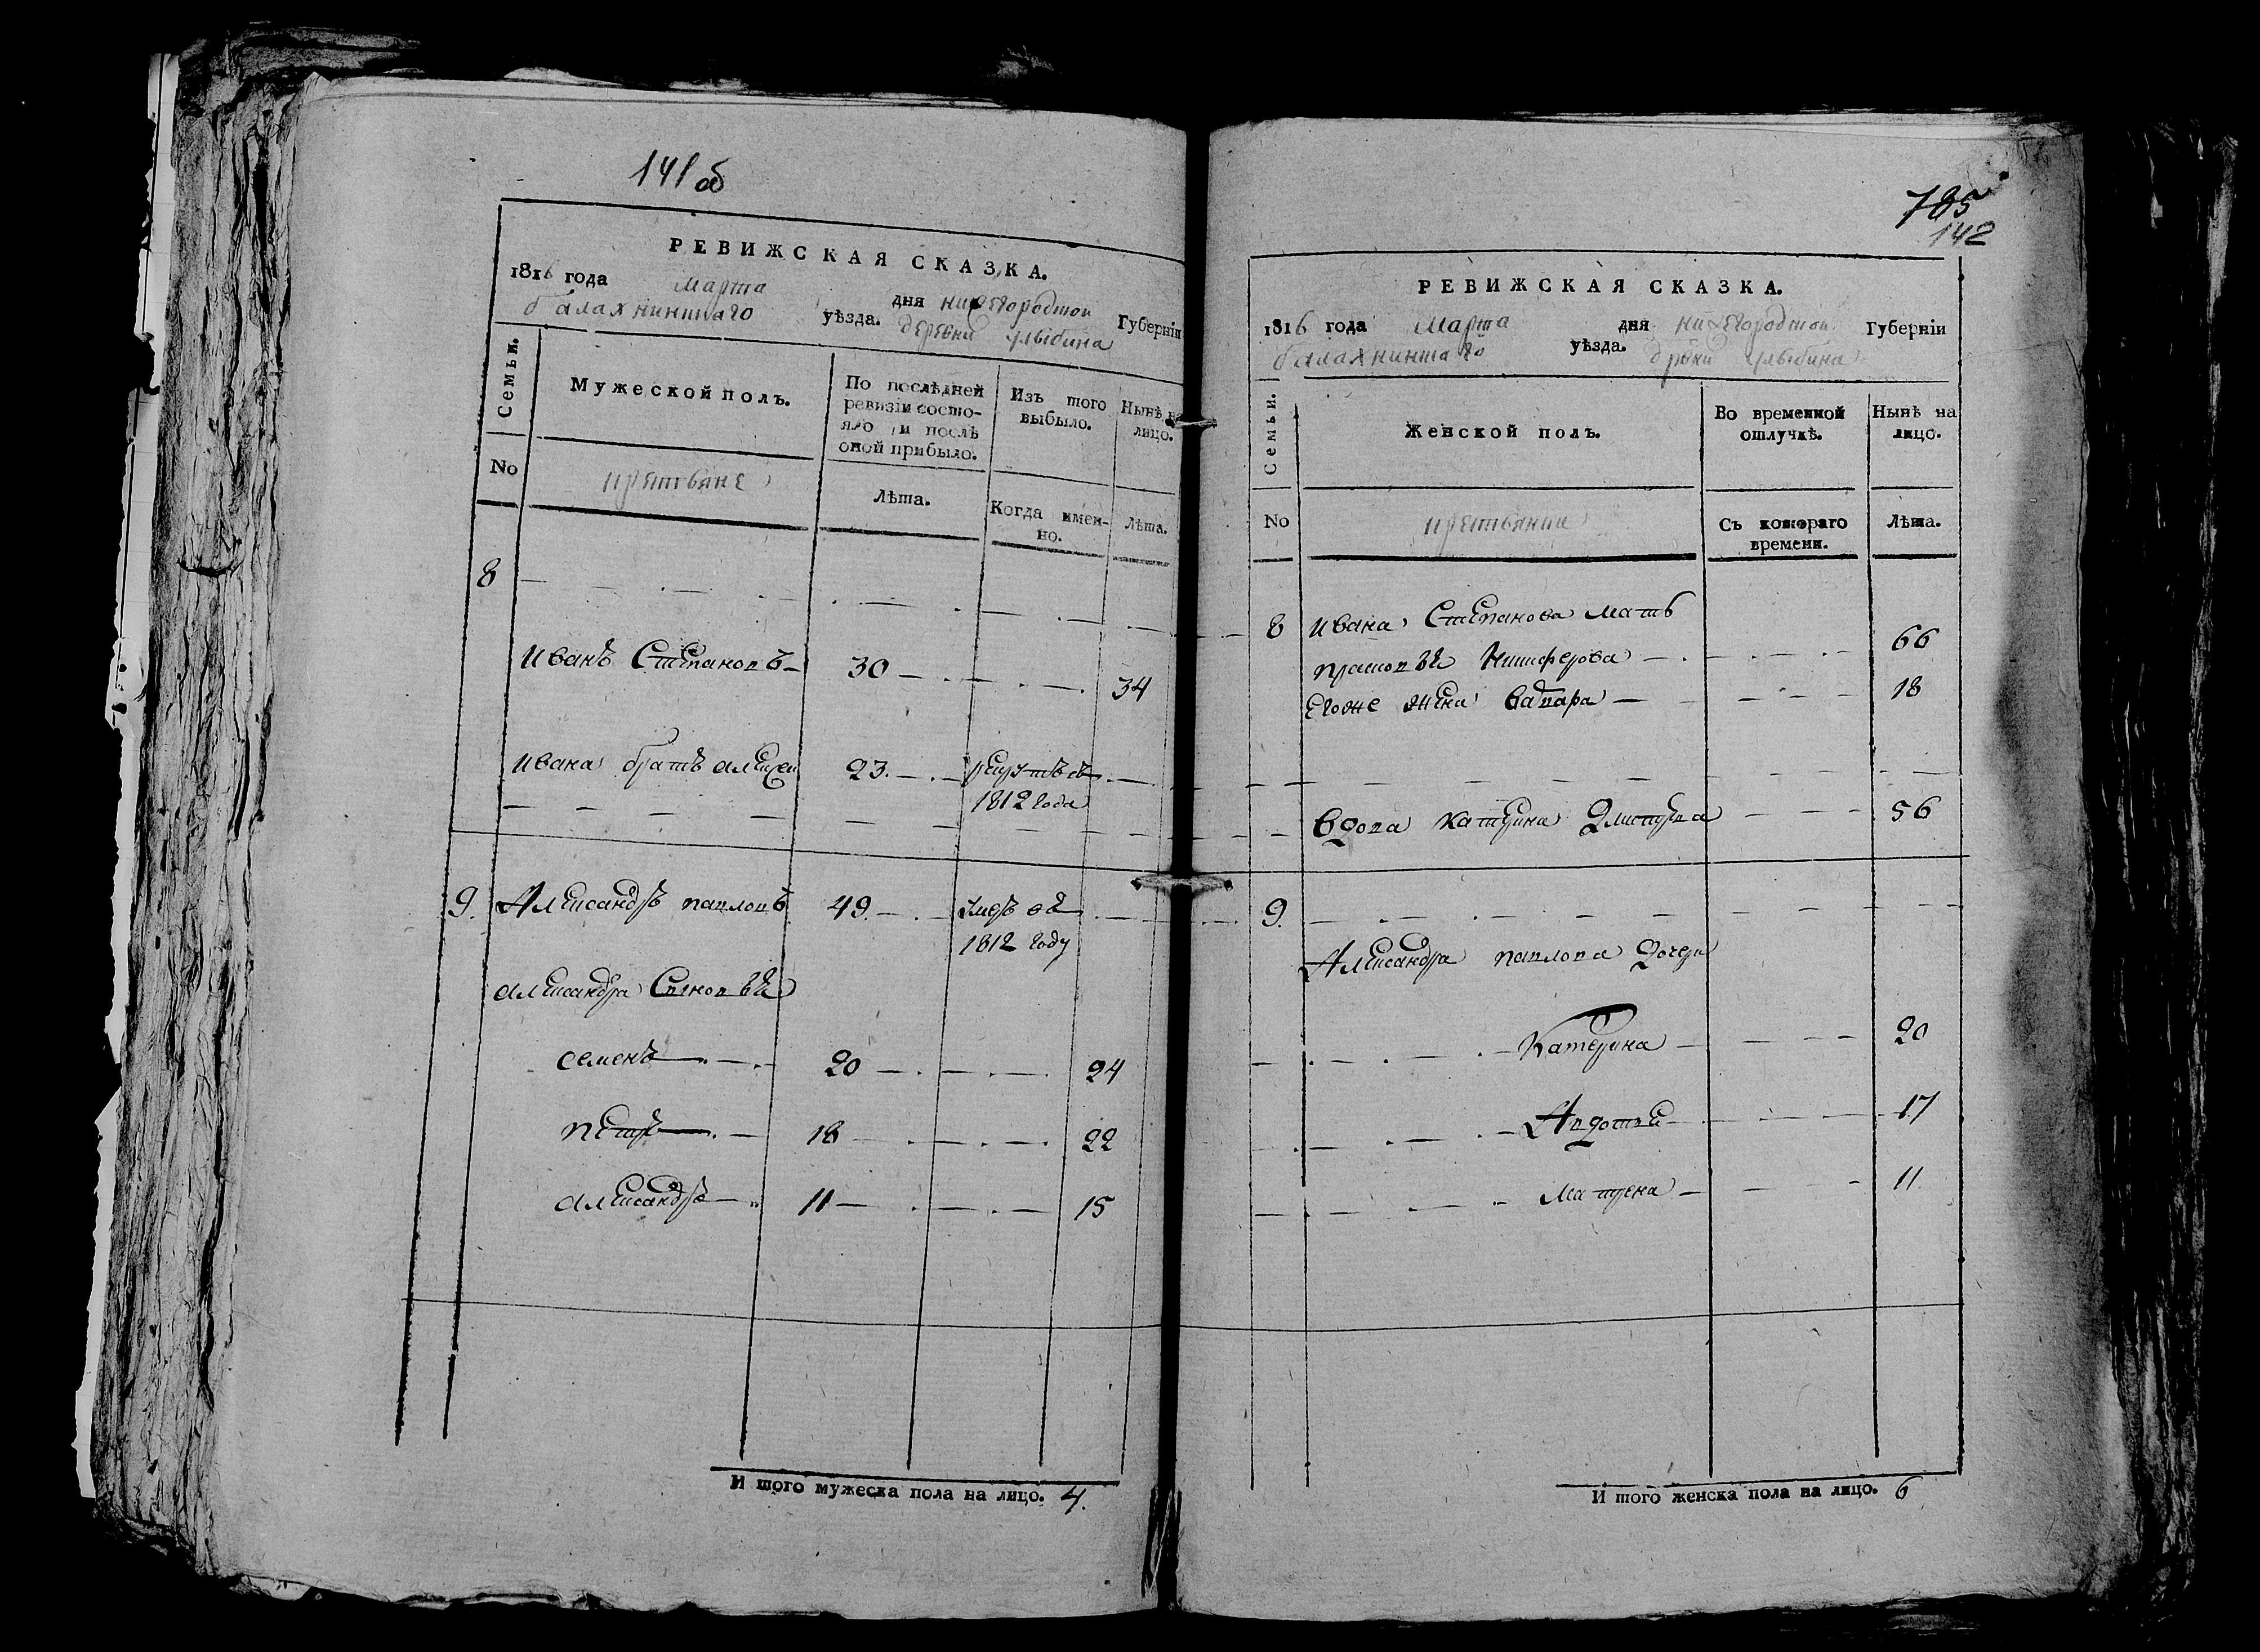 141 об
РЕВИЖСКАЯ СКАЗКА.
1816 года Марта дня нижегородской Губерніи
балахнинскаго уѣзда. деревни улыбина
Семьи.
Мужеской полъ.
По послѣдней ревизіи состояло и послѣ оной прибыло.
Изъ того выбыло.
Нынѣ на лицо.
No
крестьяне
Лѣта.
Когда именно.
Лѣта.
8
Иванъ Степановъ 30 34
Ивана братъ алексей 23. рекрутъ съ
1812 года
9. Александръ павловъ 49. умеръ въ
1812 году
александра сыновья
семенъ 20 24
петръ 18 22
александръ 11 15
И того мужеска пола на лицо. 4.
785
142
РЕВИЖСКАЯ СКАЗКА.
1816 года Марта дня нижегородской Губерніи
балахнинскаго уѣзда. дрвни улыбина
Семьи.
Женской полъ.
Во временной отлучкѣ.
Нынѣ на лицо.
No
крестьянки
Съ котораго времени.
Лѣта.
8 Ивана Степанова мать
прасковья Никифорова 66
егоже жена варвара 18
вдова катерина Дмитрева 56
9.
Александра павлова дочери
Катерина 20
Авдотья 17
Матрена 11
И того женска пола на лицо. 6